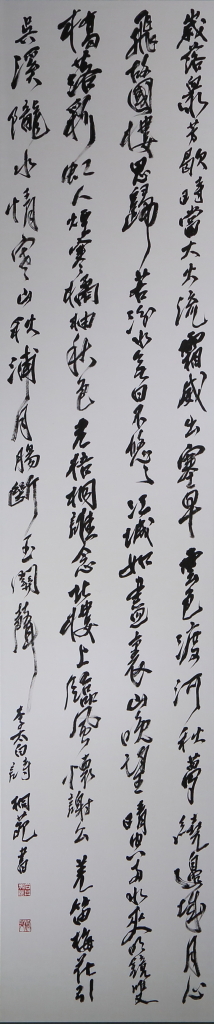 歲落衆芳歇時當大火流霜威出塞早雲色渡河秋夢繞邊城月心
飛故國樓思歸若汾水無日不悠悠江城如畫裏山晚望晴空兩水夾明鏡雙
橋落彩虹人煙寒橘柚秋色老梧桐誰念北樓上臨風懷謝公羌笛梅花引
吳溪隴水情寒山秋浦月腸斷玉關聲
李太白詩 桐苑書